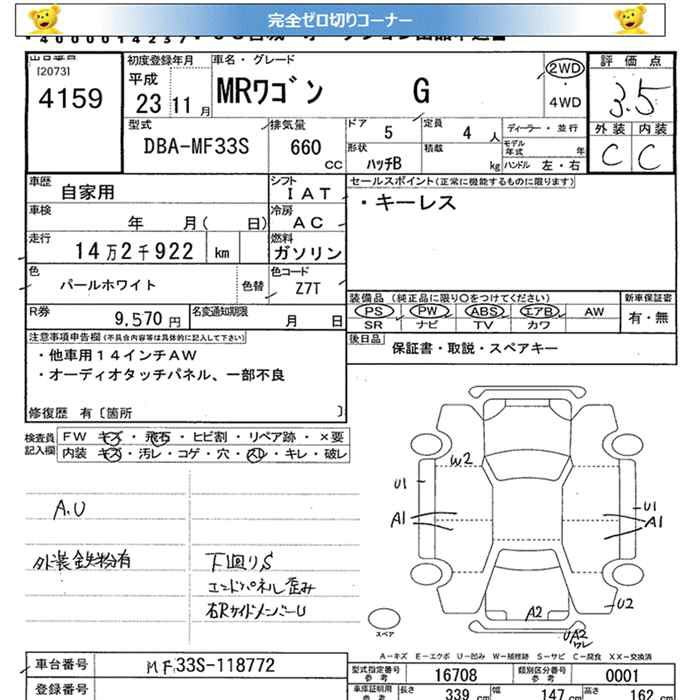 完全ゼロ切りコーナー
(20731
4159
初度登録年月
平成
23 11月
車名・グレード
MRワゴン G
2WD
・
4WD
評価点
3.5
外装 内装
C C
型式
DBA-MF33S
排気量
660
CC
ドア 5
定員 4 人
形状 ハッチB
積載 kg
ディーラー・並行
モデル年式 年
ハンドル 左・右
車歴 自家用
シフト IAT
車検 年 月( 日)
冷房 AC
走行 14万2千922 km
燃料 ガソリン
色 パールホワイト 色替
色コード Z7T
R券 9,570円
名変通知期限 月 日
セールスポイント(正常に機能するものに限ります)
・キーレス
装備品(純正品に限り○をつけてください)
PS PW ABS エアB AW
SR ナビ TV カワ
新車保証書
有・無
後日品 保証書・取説・スペアキー
注意事項申告欄(不具合内容等は具体的に記入して下さい)
・他車用14インチAW
・オーディオタッチパネル、一部不良
修復歴 有〔箇所 〕
検査員記入欄
FW キズ・飛石・ヒビ割・リペア跡・×要
内装 キズ・汚レ・コゲ・穴・スレ・キレ・破レ
A.U
外装鉄粉有
下廻りS
エンドパネル歪み
右RサイドメンバーU
W2
U1
A1
U1
A1
U2
A2
UA2
ワレ
スペア
A-キズ E-エクボ U-凹み W-補修跡 S-サビ C-腐食 XX-交換済
車台番号 MF33S-118772
登録番号
型式指定番号参考 16708
類別区分番号参考 0001
車庫証明用参考 長さ 339 cm 幅 147 cm 高さ 162 cm